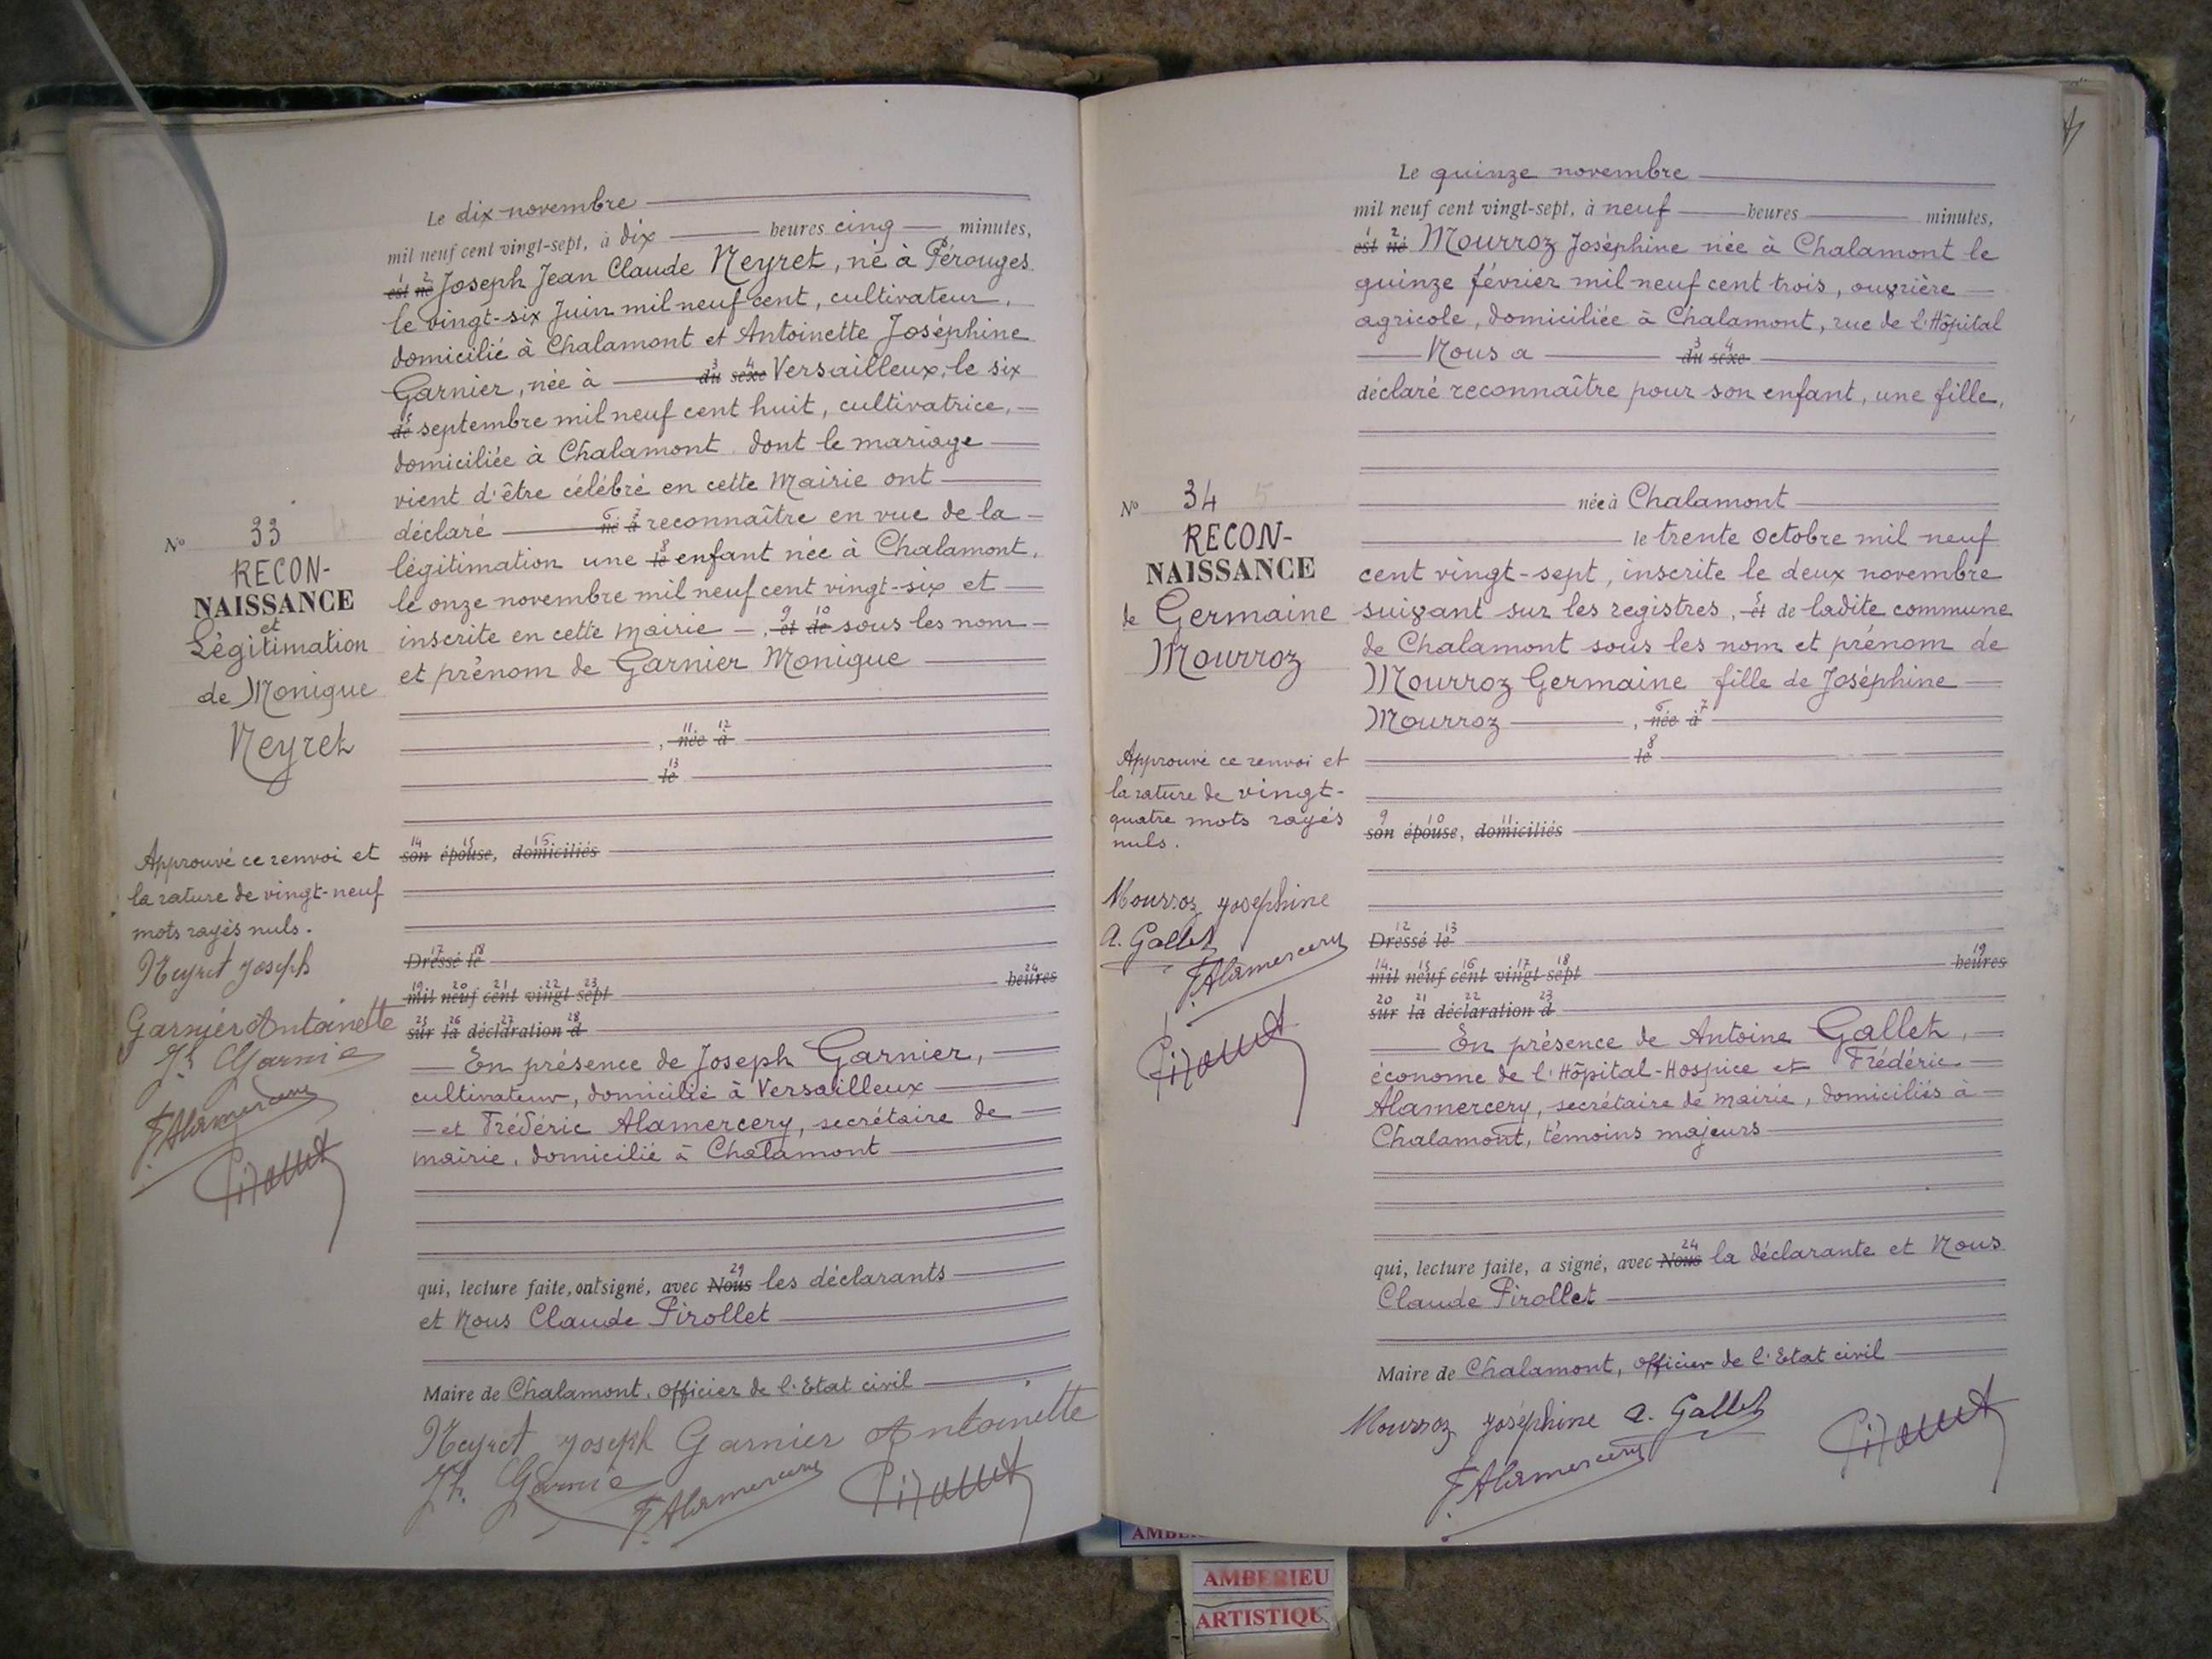 Le dix novembre
mil neuf cent vingt-sept, à dix heures cinq minutes,
est né Joseph Jean Claude Neyret, né à Pérouges
le vingt-six Juin mil neuf cent, cultivateur,
domicilié à Chalamont et Antoinette Joséphine
Garnier, née à du sexe Versailleux, le six
de septembre mil neuf cent huit, cultivatrice,
domiciliée à Chalamont dont le mariage
vient d'être célébré en cette Mairie ont
déclaré né à reconnaître en vue de la
légitimation une le enfant née à Chalamont,
le onze novembre mil neuf cent vingt-six et
inscrite en cette mairie, et de sous les nom
et prénom de Garnier Monique
, née à
le
son épouse, domiciliés
Dressé le
mil neuf cent vingt sept heures
sur la déclaration d
En présence de Joseph Garnier,
cultivateur, domicilié à Versailleux
et Frédéric Alamercery, secrétaire de
mairie, domicilié à Chalamont
qui, lecture faite, ont signé, avec Nous les déclarants
et Nous Claude Pirollet
Maire de Chalamont, officier de l'Etat civil
Neyret Joseph Garnier Antoinette
Jh. Garnier F. Alamercery Pirollet
N° 33
RECON-
NAISSANCE
et
Légitimation
de Monique
Neyret
Approuvé ce renvoi et
la rature de vingt-neuf
mots rayés nuls.
Neyret Joseph
Garnier Antoinette
Jh Garnier
F. Alamercery
Pirollet
Le quinze novembre
mil neuf cent vingt-sept, à neuf heures minutes,
est né Mourroz Joséphine née à Chalamont le
quinze février mil neuf cent trois, ouvrière
agricole, domiciliée à Chalamont, rue de l'Hôpital
Nous a du sexe
déclaré reconnaître pour son enfant, une fille,
née à Chalamont
le trente octobre mil neuf
cent vingt-sept, inscrite le deux novembre
suivant sur les registres, et de ladite commune
de Chalamont sous les nom et prénom de
Mourroz Germaine fille de Joséphine
Mourroz, née à
le
son épouse, domiciliés
Dressé le
mil neuf cent vingt sept heures
sur la déclaration d
En présence de Antoine Gallet,
économe de l'Hôpital-Hospice et Frédéric
Alamercery, secrétaire de mairie, domiciliés à
Chalamont, témoins majeurs
qui, lecture faite, a signé, avec Nous la déclarante et Nous
Claude Pirollet
Maire de Chalamont, officier de l'Etat civil
Mourroz Joséphine A. Gallet
F. Alamercery Pirollet
N° 34
RECON-
NAISSANCE
de Germaine
Mourroz
Approuvé ce renvoi et
la rature de vingt-
quatre mots rayés
nuls.
Mourroz Joséphine
A. Gallet
F. Alamercery
Pirollet
AMBERIEU
ARTISTIQU